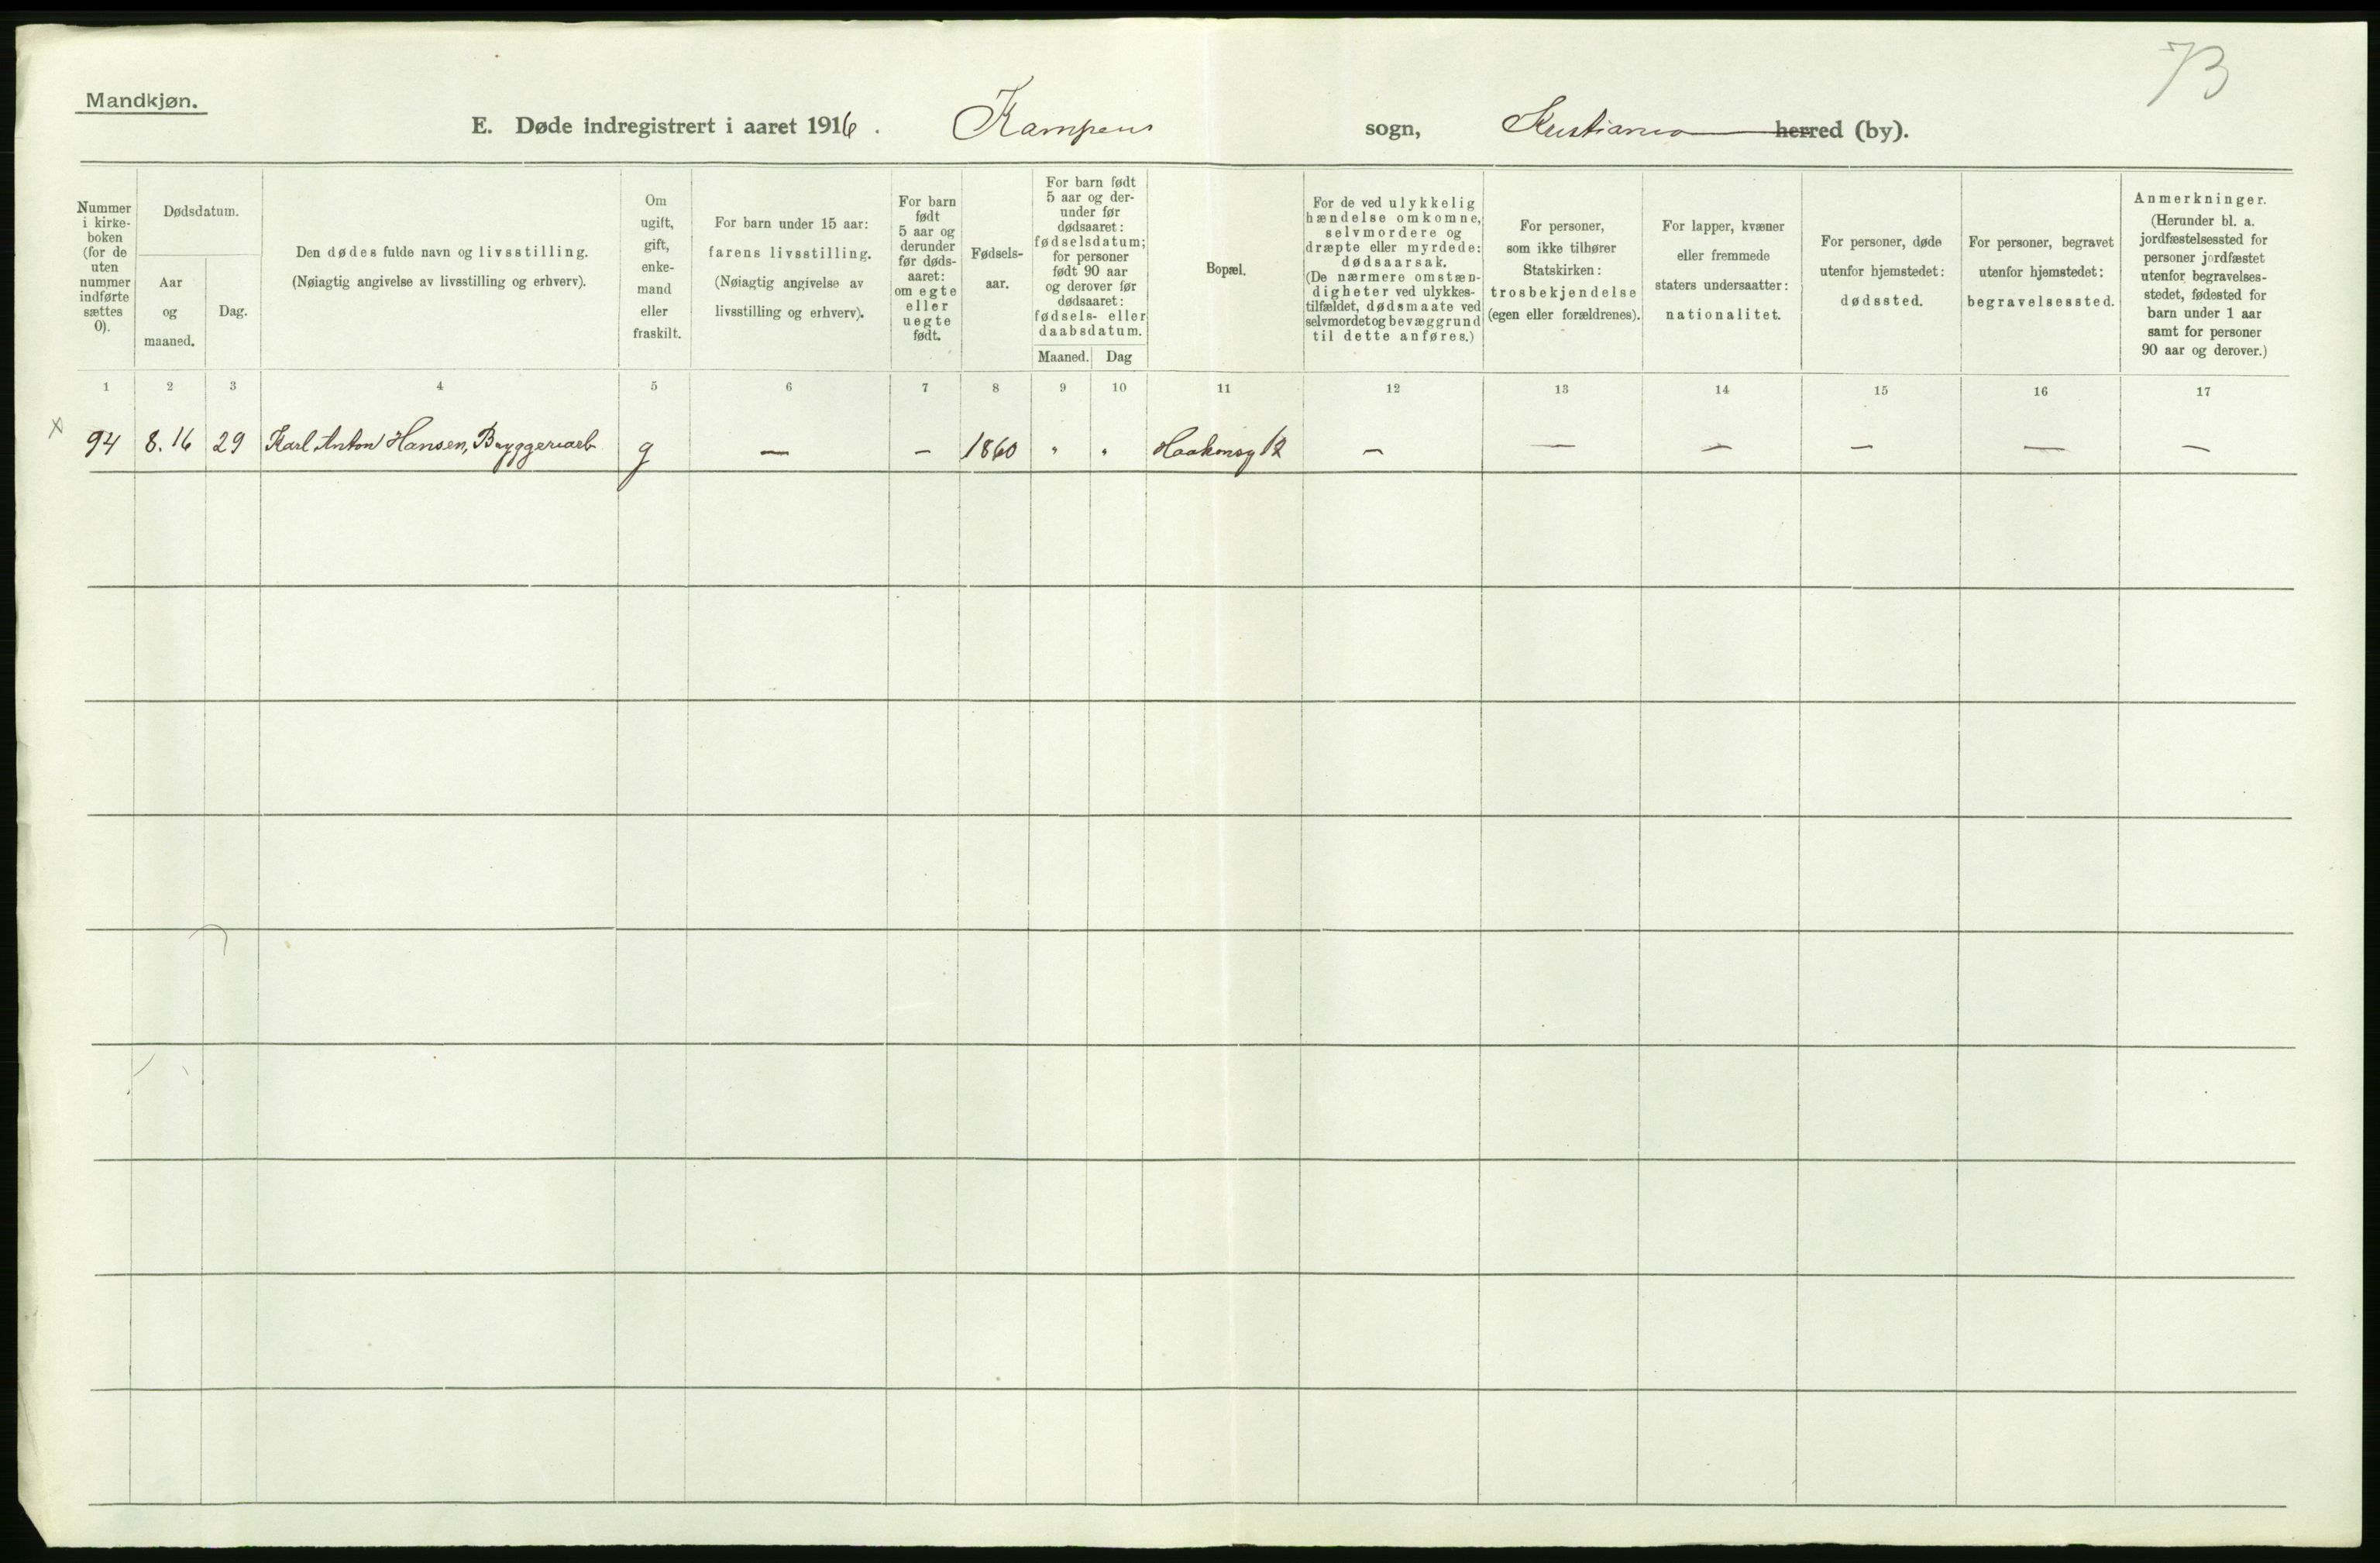 73
Mandkjøn.
E. Døde indregistrert i aaret 1916. Kampens sogn, Kristiania herred (by).
Nummer
i kirke-
boken
(for de
uten
nummer
indførte
sættes
0).
Dødsdatum.
Aar
og
maaned.
Dag.
Den dødes fulde navn og livsstilling.
(Nøiagtig angivelse av livsstilling og erhverv).
Om
ugift,
gift,
enke-
mand
eller
fraskilt.
For barn under 15 aar:
farens livsstilling.
(Nøiagtig angivelse av
livsstilling og erhverv).
For barn
født
5 aar og
derunder
før døds-
aaret:
om egte
eller
uegte
født.
Fødsels-
aar.
For barn født
5 aar og der-
under før
dødsaaret:
fødselsdatum;
for personer
født 90 aar
og derover før
dødsaaret:
fødsels- eller
daabsdatum.
Maaned. Dag
Bopæl.
For de ved ulykkelig
hændelse omkomne,
selvmordere og
dræpte eller myrdede:
dødsaarsak.
(De nærmere omstæn-
digheter ved ulykkes-
tilfældet, dødsmaate ved
selvmordet og bevæggrund
til dette anføres.)
For personer,
som ikke tilhører
Statskirken:
trosbekjendelse
(egen eller forældrenes).
For lapper, kvæner
eller fremmede
staters undersaatter:
nationalitet.
For personer, døde
utenfor hjemstedet:
dødssted.
For personer, begravet
utenfor hjemstedet:
begravelsessted.
Anmerkninger.
(Herunder bl. a.
jordfæstelsessted for
personer jordfæstet
utenfor begravelses-
stedet, fødested for
barn under 1 aar
samt for personer
90 aar og derover.)
1 2 3 4 5 6 7 8 9 10 11 12 13 14 15 16 17
x 94 8.16 29 Karl Anton Hansen, Bryggeriarb g — — 1860 " " Haakonsg 12 — — — — — —